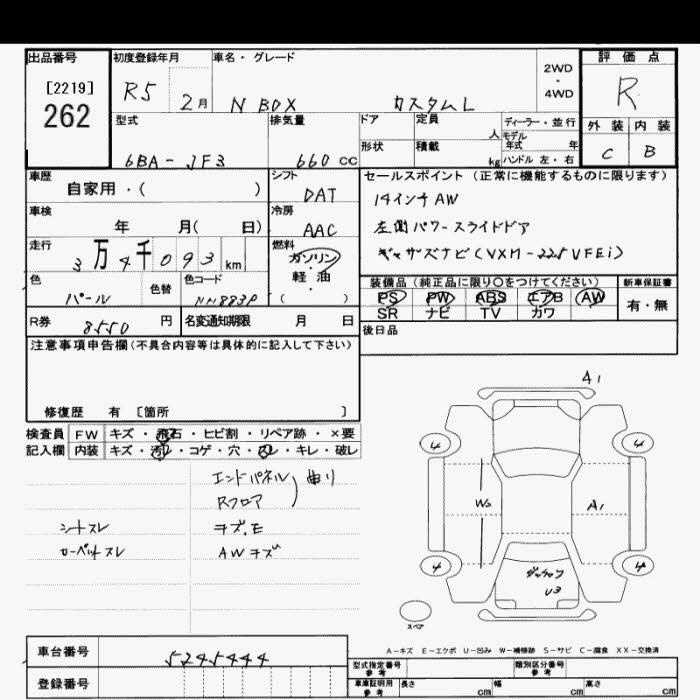 出品番号 初度登録年月 車名・グレード 評価点
[2219] 262
R5 2月 N BOX カスタムL
2WD・4WD
R
型式 排気量 ドア 定員 人 ディーラー・並行
モデル年式 年
外装 内装
6BA-JF3 660cc 形状 積載 kg ハンドル 左・右
C B
車歴 自家用・( )
シフト DAT
セールスポイント(正常に機能するものに限ります)
14インチAW
左側パワースライドドア
ギャザズナビ(VXM-225VFEi)
車検 年 月( 日)
冷房 AAC
走行 3万4千093km
燃料 ガソリン・軽油 ( )
色 パール 色替 色コード NH883P
装備品(純正品に限り○をつけてください) 新車保証書
PS PW ABS エアB AW 有・無
SR ナビ TV カワ
R券 8550円 名変通知期限 月 日
後日品
注意事項申告欄(不具合内容等は具体的に記入して下さい)
修復歴 有 [箇所 ]
検査員 FW キズ・飛石・ヒビ割・リペア跡・×要
記入欄 内装 キズ・汚レ・コゲ・穴・スレ・キレ・破レ
エンドパネル 曲り
Rフロア
シートスレ
A W キズ
A1
4 4
W2 A1
4 4
U3
スペア
A-キズ E-エクボ U-凹み W-補修跡 S-サビ C-腐食 XX-交換済
車台番号 5245444
登録番号
型式指定番号 参考 類別区分番号 参考
車庫証明用 参考 長さ cm 幅 cm 高さ cm